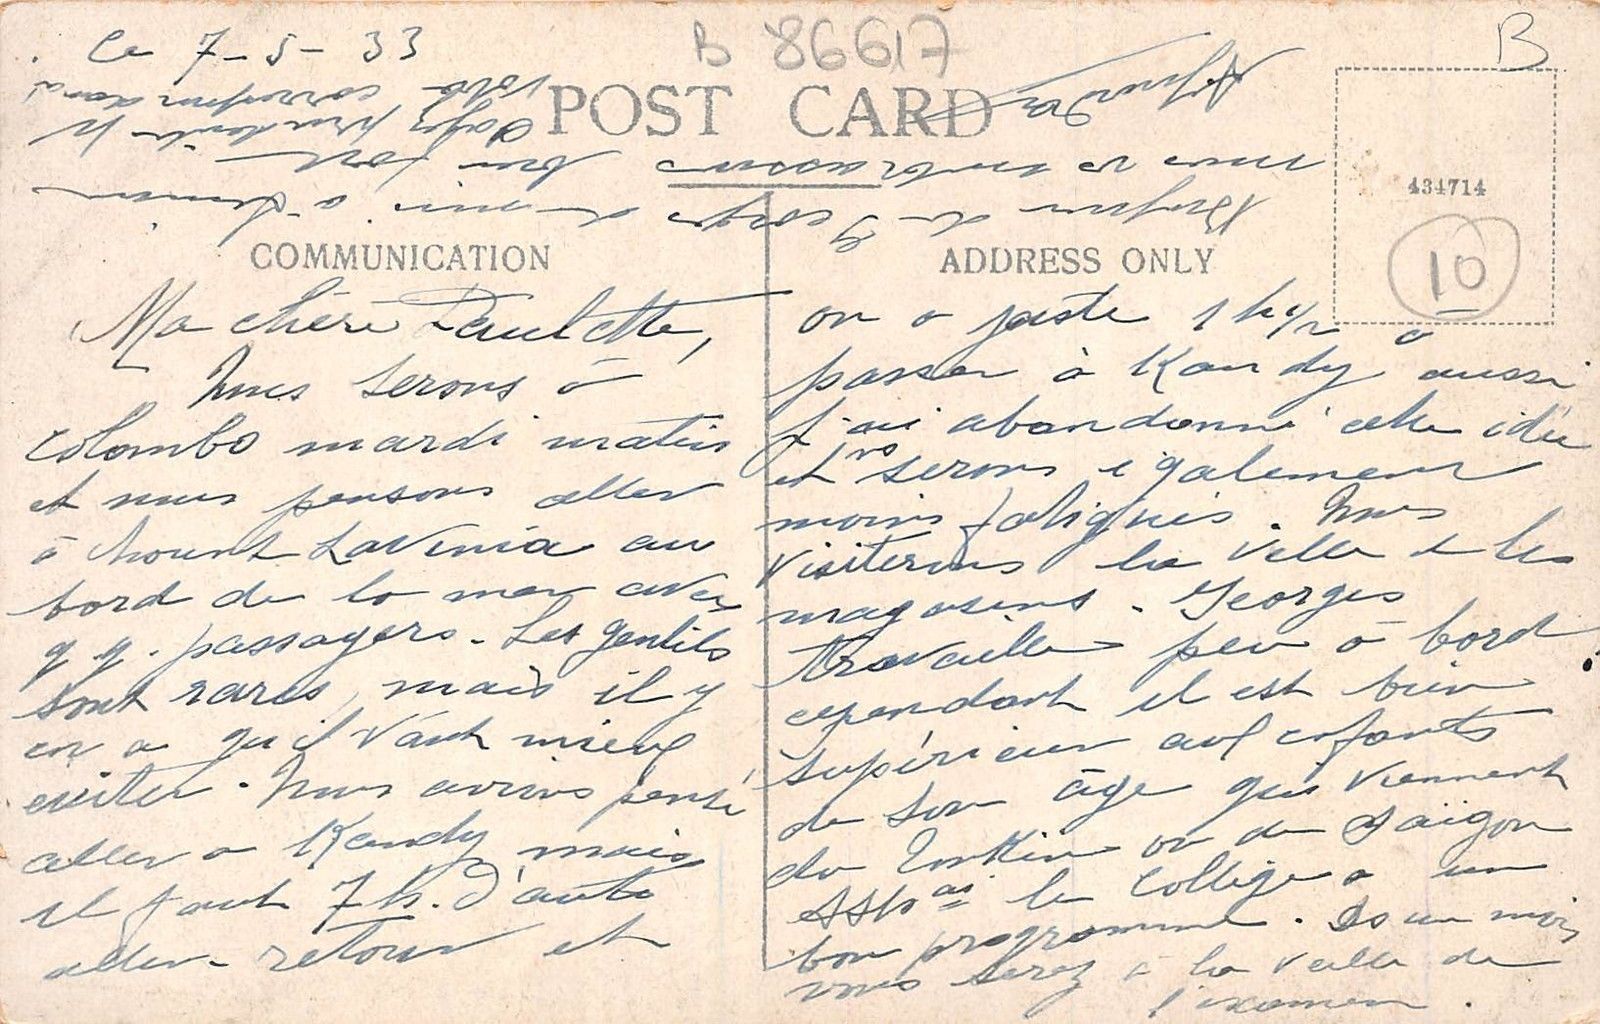 Ce 7-5-33
B 86617
B
POST CARD
434714
10
COMMUNICATION
ADDRESS ONLY
Ma chère Paulette,
Nous serons à
Colombo mardi matin
et nous pensons aller
à Mount Lavinia au
bord de la mer avec
q.q. passagers. Les gentils
sont rares, mais il y
en a qu'il vaut mieux
eviter. Nous avions pensé
aller a Kandy mais
il faut 7 h. d'auto
aller-retour et
on a juste 1 h 1/2 a
passer à Kandy aussi
j'ai abandonné cette idée
et ns serons également
moins fatigués. Nous
visiterons la ville & les
magasins. Georges
travaille peu à bord
cependant il est bien
supérieur aux enfants
de son âge qui viennent
du Tonkin ou de Saïgon
le Collège a un
bon programme. Ds un mois
vous serez à la veille de
l'examen.
de Georges de moi à
nous vs embrassons bien fort
votre